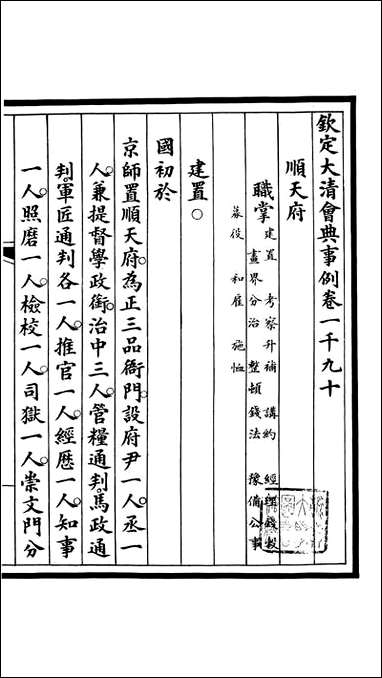 欽定大清會典事例卷一千九十
順天府
職掌 建置 考察升補 講約 經理錢穀
畫界分治 整頓錢法 豫備公事
募役 和雇 施恤
建置○
國初於
京師置順天府。為正三品衙門。設府尹一人。丞一
人。兼提督學政銜。治中三人。管糧通判。馬政通
判。軍匠通判各一人。推官一人。經歷一人。知事
一人。照磨一人。檢校一人。司獄一人。崇文門分